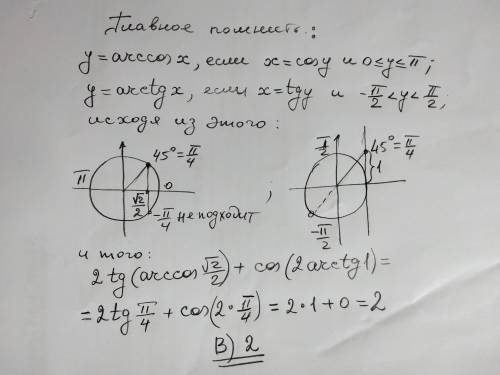 Главное помнить:
y = arccos x, если x = cos y и 0 ≤ y ≤ π;
y = arctg x, если x = tg y и -π/2 < y < π/2,
исходя из этого:
π 45° = π/4 0 √2/2 -π/4 не подходит ;
π/2 45° = π/4 1 -π/2
и того:
2 tg (arccos √2/2) + cos (2 arctg 1) =
= 2 tg π/4 + cos (2 · π/4) = 2 · 1 + 0 = 2
В) 2